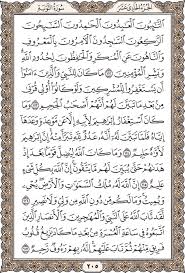 الجزء الحادي عشر سورة التوبة
ٱلتَّٰٓئِبُونَ ٱلْعَٰبِدُونَ ٱلْحَٰمِدُونَ ٱلسَّٰٓئِحُونَ
ٱلرَّٰكِعُونَ ٱلسَّٰجِدُونَ ٱلْءَامِرُونَ بِٱلْمَعْرُوفِ
وَٱلنَّاهُونَ عَنِ ٱلْمُنكَرِ وَٱلْحَٰفِظُونَ لِحُدُودِ ٱللَّهِ
وَبَشِّرِ ٱلْمُؤْمِنِينَ ١١٢ مَا كَانَ لِلنَّبِيِّ وَٱلَّذِينَ
ءَامَنُوٓا۟ أَن يَسْتَغْفِرُوا۟ لِلْمُشْرِكِينَ وَلَوْ كَانُوٓا۟ أُو۟لِي
قُرْبَىٰ مِنۢ بَعْدِ مَا تَبَيَّنَ لَهُمْ أَنَّهُمْ أَصْحَٰبُ ٱلْجَحِيمِ ١١٣
وَمَا كَانَ ٱسْتِغْفَارُ إِبْرَٰهِيمَ لِأَبِيهِ إِلَّا عَن مَّوْعِدَةٍ وَعَدَهَآ
إِيَّاهُ فَلَمَّا تَبَيَّنَ لَهُۥٓ أَنَّهُۥ عَدُوٌّ لِّلَّهِ تَبَرَّأَ مِنْهُ إِنَّ إِبْرَٰهِيمَ
لَأَوَّٰهٌ حَلِيمٌ ١١٤ وَمَا كَانَ ٱللَّهُ لِيُضِلَّ قَوْمًۢا بَعْدَ
إِذْ هَدَىٰهُمْ حَتَّىٰ يُبَيِّنَ لَهُم مَّا يَتَّقُونَ إِنَّ ٱللَّهَ بِكُلِّ شَىْءٍ
عَلِيمٌ ١١٥ إِنَّ ٱللَّهَ لَهُۥ مُلْكُ ٱلسَّمَٰوَٰتِ وَٱلْأَرْضِ يُحْىِۦ
وَيُمِيتُ وَمَا لَكُم مِّن دُونِ ٱللَّهِ مِن وَلِيٍّ وَلَا نَصِيرٍ ١١٦
لَّقَد تَّابَ ٱللَّهُ عَلَى ٱلنَّبِيِّ وَٱلْمُهَٰجِرِينَ وَٱلْأَنصَارِ ٱلَّذِينَ
ٱتَّبَعُوهُ فِي سَاعَةِ ٱلْعُسْرَةِ مِنۢ بَعْدِ مَا كَادَ يَزِيغُ قُلُوبُ
فَرِيقٍ مِّنْهُمْ ثُمَّ تَابَ عَلَيْهِمْ إِنَّهُۥ بِهِمْ رَءُوفٌ رَّحِيمٌ ١١٧
٢٠٥